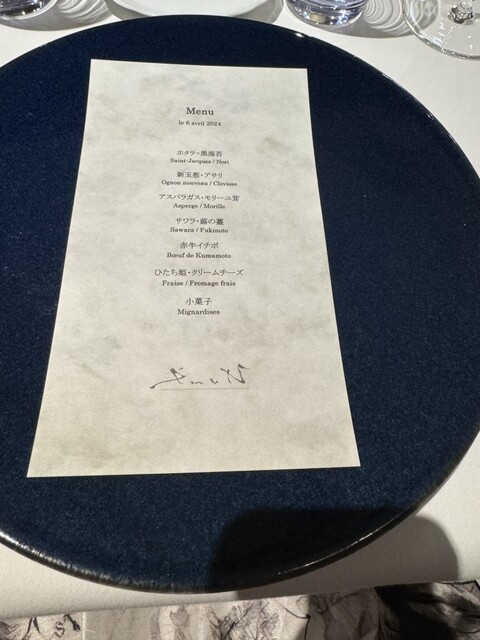 Menu
le 6 avril 2024
ホタテ・黒海苔
Saint-Jacques / Nori
新玉葱・アサリ
Ognon nouveau / Clovisse
アスパラガス・モリーユ茸
Asperge / Morille
サワラ・蕗の薹
Sawara / Fukinoto
赤牛イチボ
Bœuf de Kumamoto
ひたち姫・クリームチーズ
Fraise / Fromage frais
小菓子
Mignardises